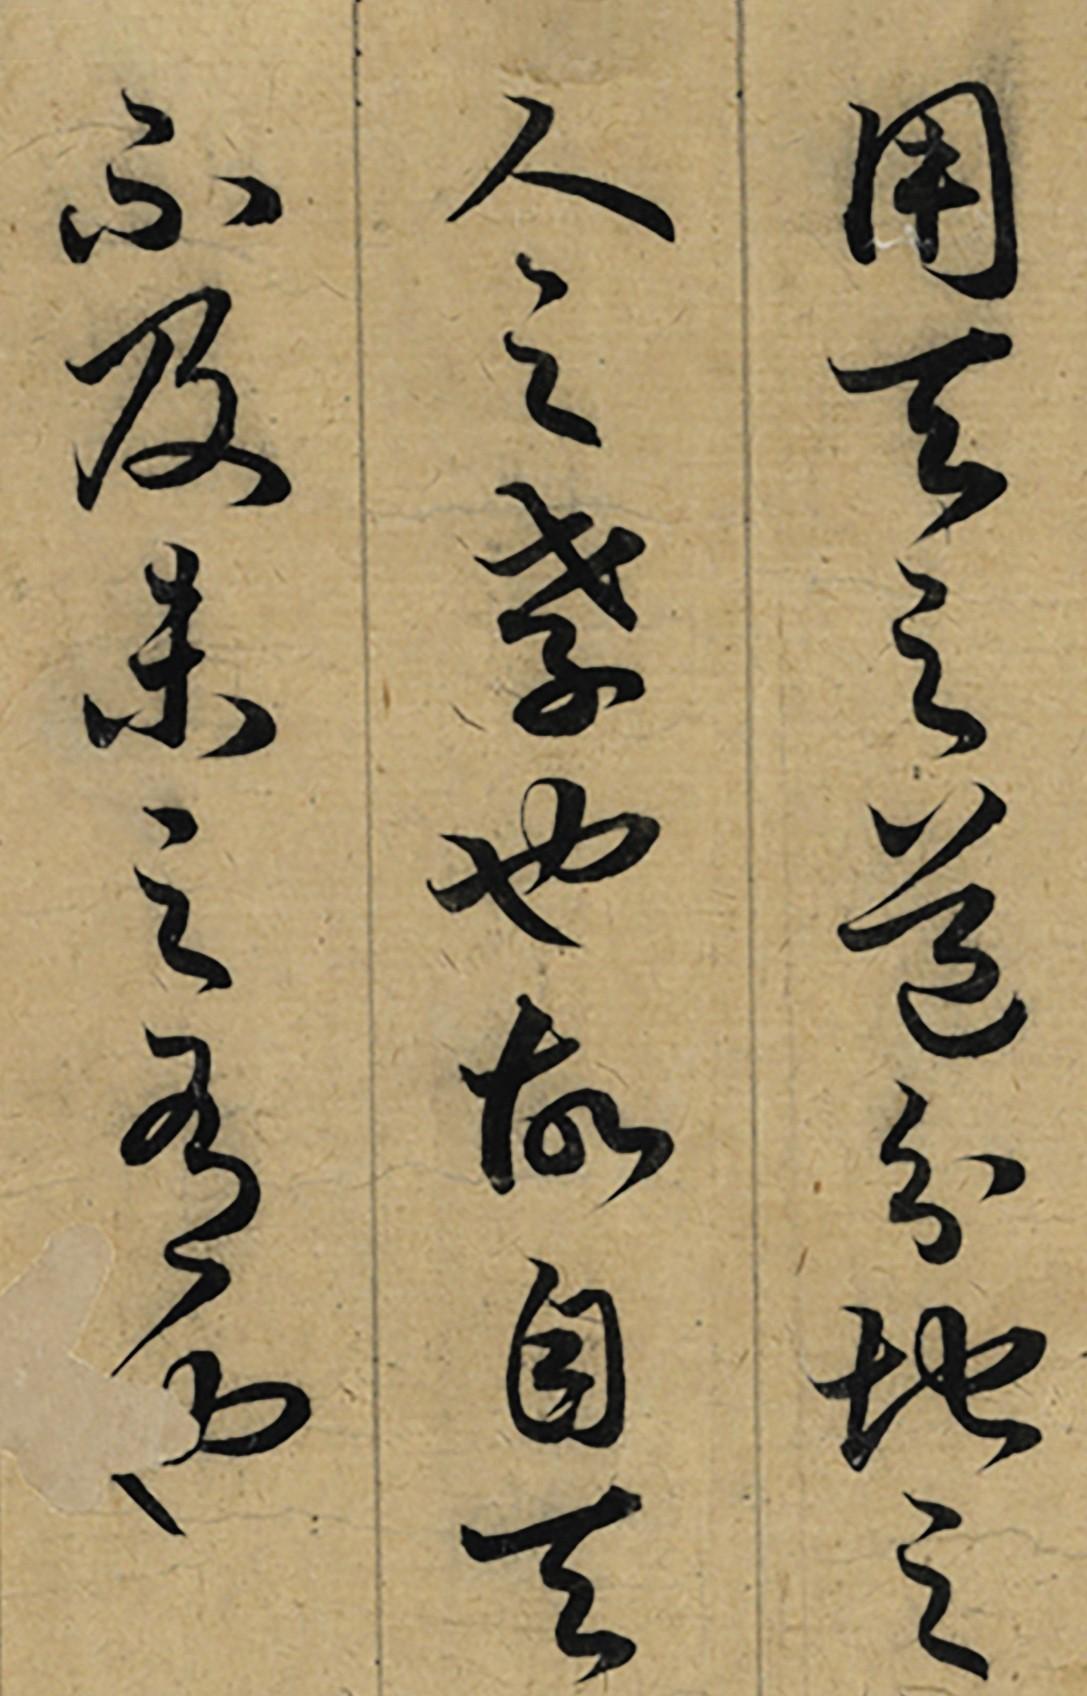 用天之道分地之
人之孝也故自天
不及未之有也